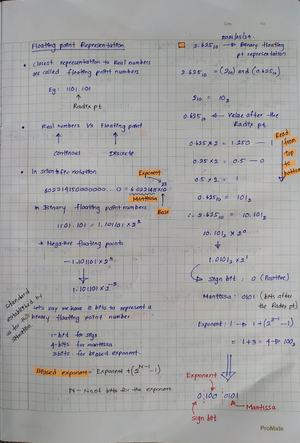 Floating point Representation
• Closest representation to Real numbers
are called floating point numbers
Eg: 1101.101
Radix pt
• Real numbers Vs Floating point
Continous Discrete
• In scientific notation
Exponent
602214150000000...0 = 6.0221415×10²³
Mantissa
Base
In Binary floating point numbers
1101.101 = 1.101101 × 2³
→ Negative floating points
-1.101101 × 2³
1.101101 × 2⁻³
Standard
established by
Let's say we have 8 bits to represent a
binary floating point number
1-bit for sign
4-bits for mantissa
3bits for biased exponent.
Biased exponent = Exponent + (2ᴺ⁻¹-1)
N - No.of bits for the exponent
2.625₁₀ → Binary floating
pt representation
2.625₁₀ = (2₁₀) and (0.625₁₀)
2₁₀ = 10₂
0.625₁₀ ← Value after the
Radix pt
Read
from
Top
to
bottom
0.625 × 2 = 1.250 — 1
0.25 × 2 = 0.5 — 0
0.5 × 2 = 1 1
0.625₁₀ = 101₂
∴ 2.625₁₀ = 10.101₂
10.101₂ × 2⁰
1.0101₂ × 2¹
Sign bit : 0 (Positive)
Mantissa : 0101 (bits after
the Radix pt)
Exponent : 1 → 1+(2³⁻¹-1)
= 1+3 = 4 → 100₂
Exponent
0 100 0101
Sign bit
Mantissa
ProMate